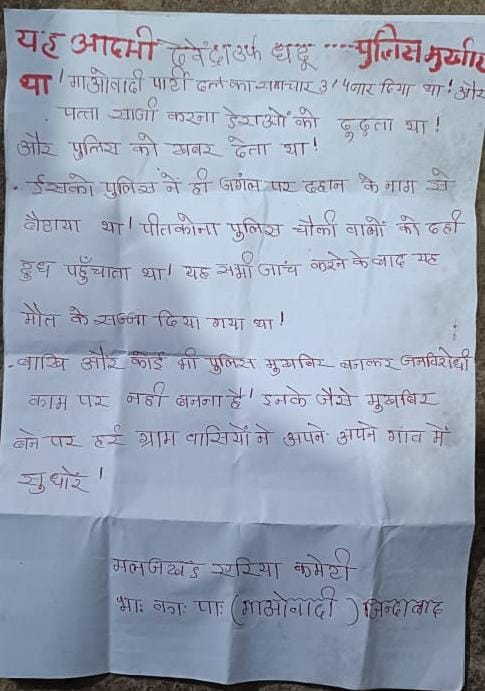 यह आदमी देवेंद्र उर्फ धदू ---- पुलिस मुखबीर
था! माओवादी पार्टी दल का समाचार 3/4 बार दिया था! और
पत्ता साजी करना डेराओं को ढूढ़ता था!
और पुलिस को खबर देता था!
. ईसको पुलिस नें ही जगंल पर दहान के नाम से
बैठाया था! पीतकोना पुलिस चौकी वालों को दही
दुध पहुँचाता था! यह सभी जांच करने के बाद यह
मौत के सज्जा दिया गया था!
. बाखि और कोई भी पुलिस मुखबिर बनकर जनविरोधी
काम पर नही बनना है! इनके जैसे मुखबिर
बने पर हर ग्राम वासियों ने अपने अपने गांव में
सुधारें!
मलाजखंड एरिया कमेटी
भा: का: पा: (माओवादी) जिन्दाबाद